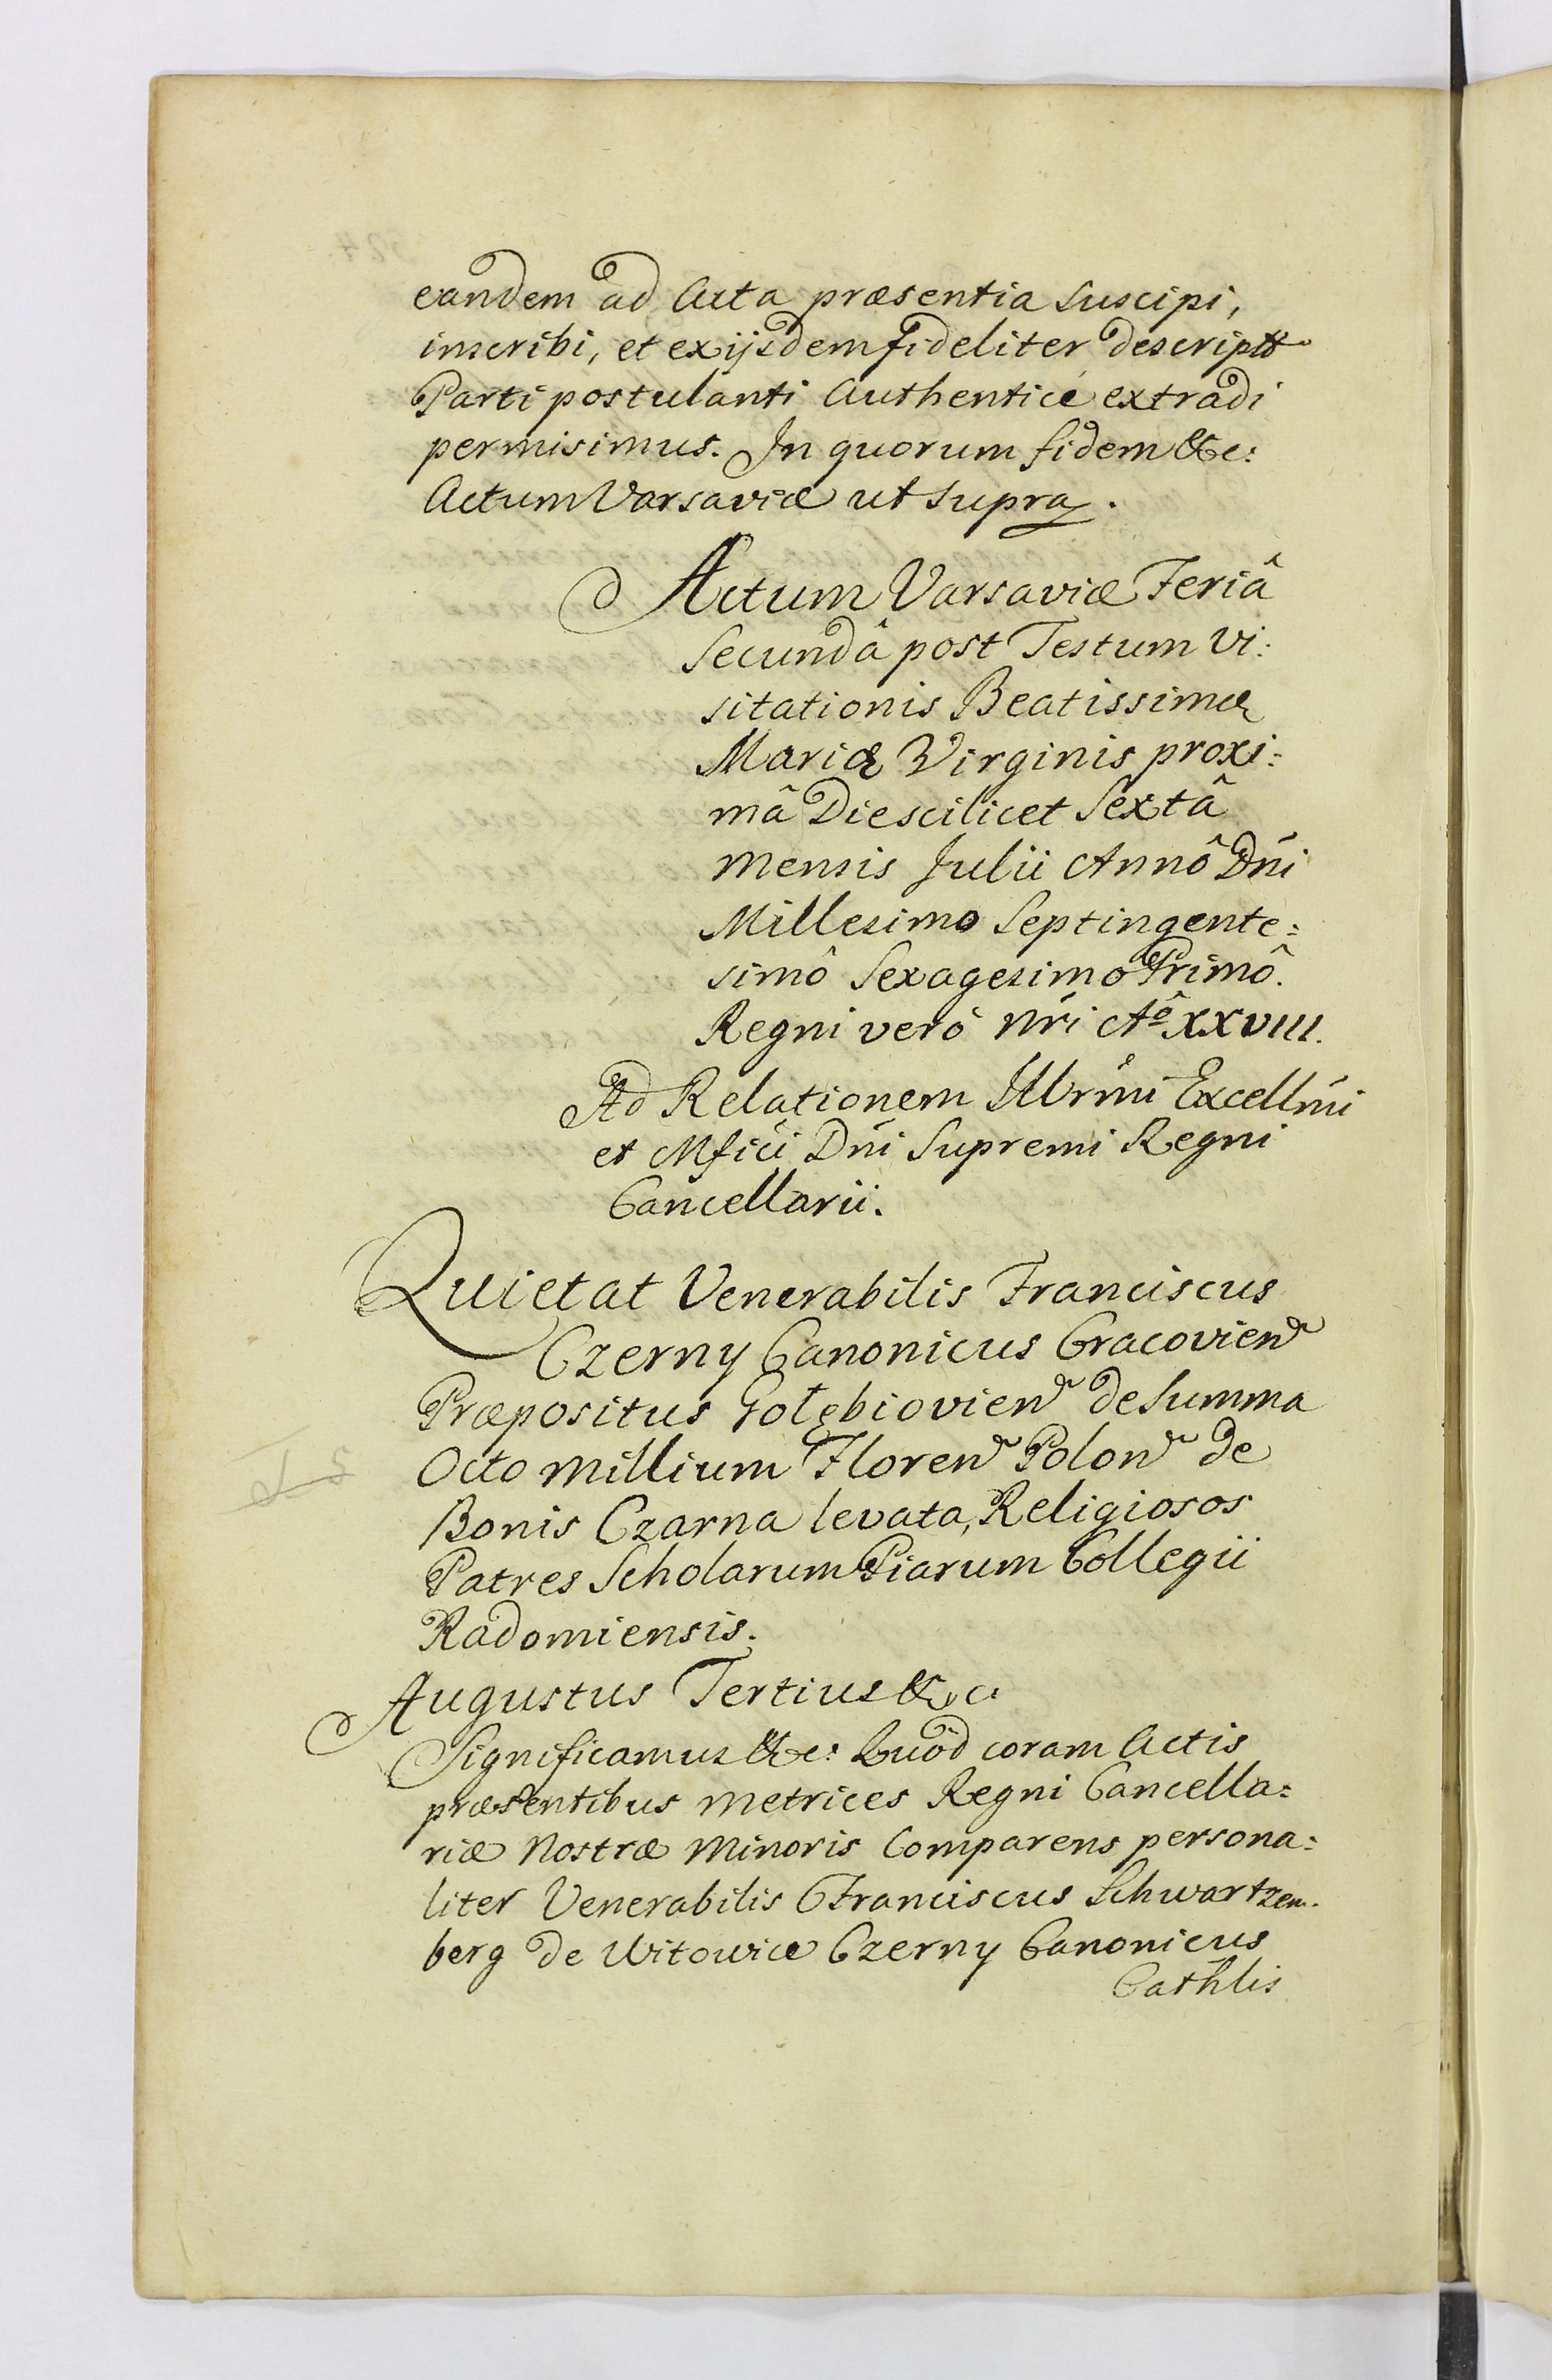 eandem ad Acta præsentia suscipi,
inscribi, et ex ijsdem fideliter descriptã
Parti postulanti Authenticè extradi
permisimus. In quorum fidem &c:
Actum Varsaviæ ut supra.
Actum Varsaviæ Feriâ
Secundâ post Festum Vi:
sitationis Beatissimæ
Mariæ Virginis proxi:
mâ Die scilicet Sextâ
mensis Julii Annô Dńi
Millesimo Septingente:
simô Sexagesimo Primô.
Regni verò nŕi Aº XXVIII.
Ad Relationem Illŕmi Excellḿi
et Mfici Dńi Supremi Regni
Cancellarii.
Quietat Venerabilis Franciscus
Czerny Canonicus Cracovien̄
Præpositus Gołębiovien̄ de summa
Octo Millium Floren̄ Polon̄ de
Bonis Czarna levata, Religiosos
Patres Scholarum Piarum Collegii
Radomiensis.
Augustus Tertius &c:
Significamus &c: Quòd coram Actis
præsentibus Metrices Regni Cancella:
riæ Nostræ Minoris Comparens persona:
liter Venerabilis Franciscus Schwartzem.
berg de Witowice Czerny Canonicus
Cathlis